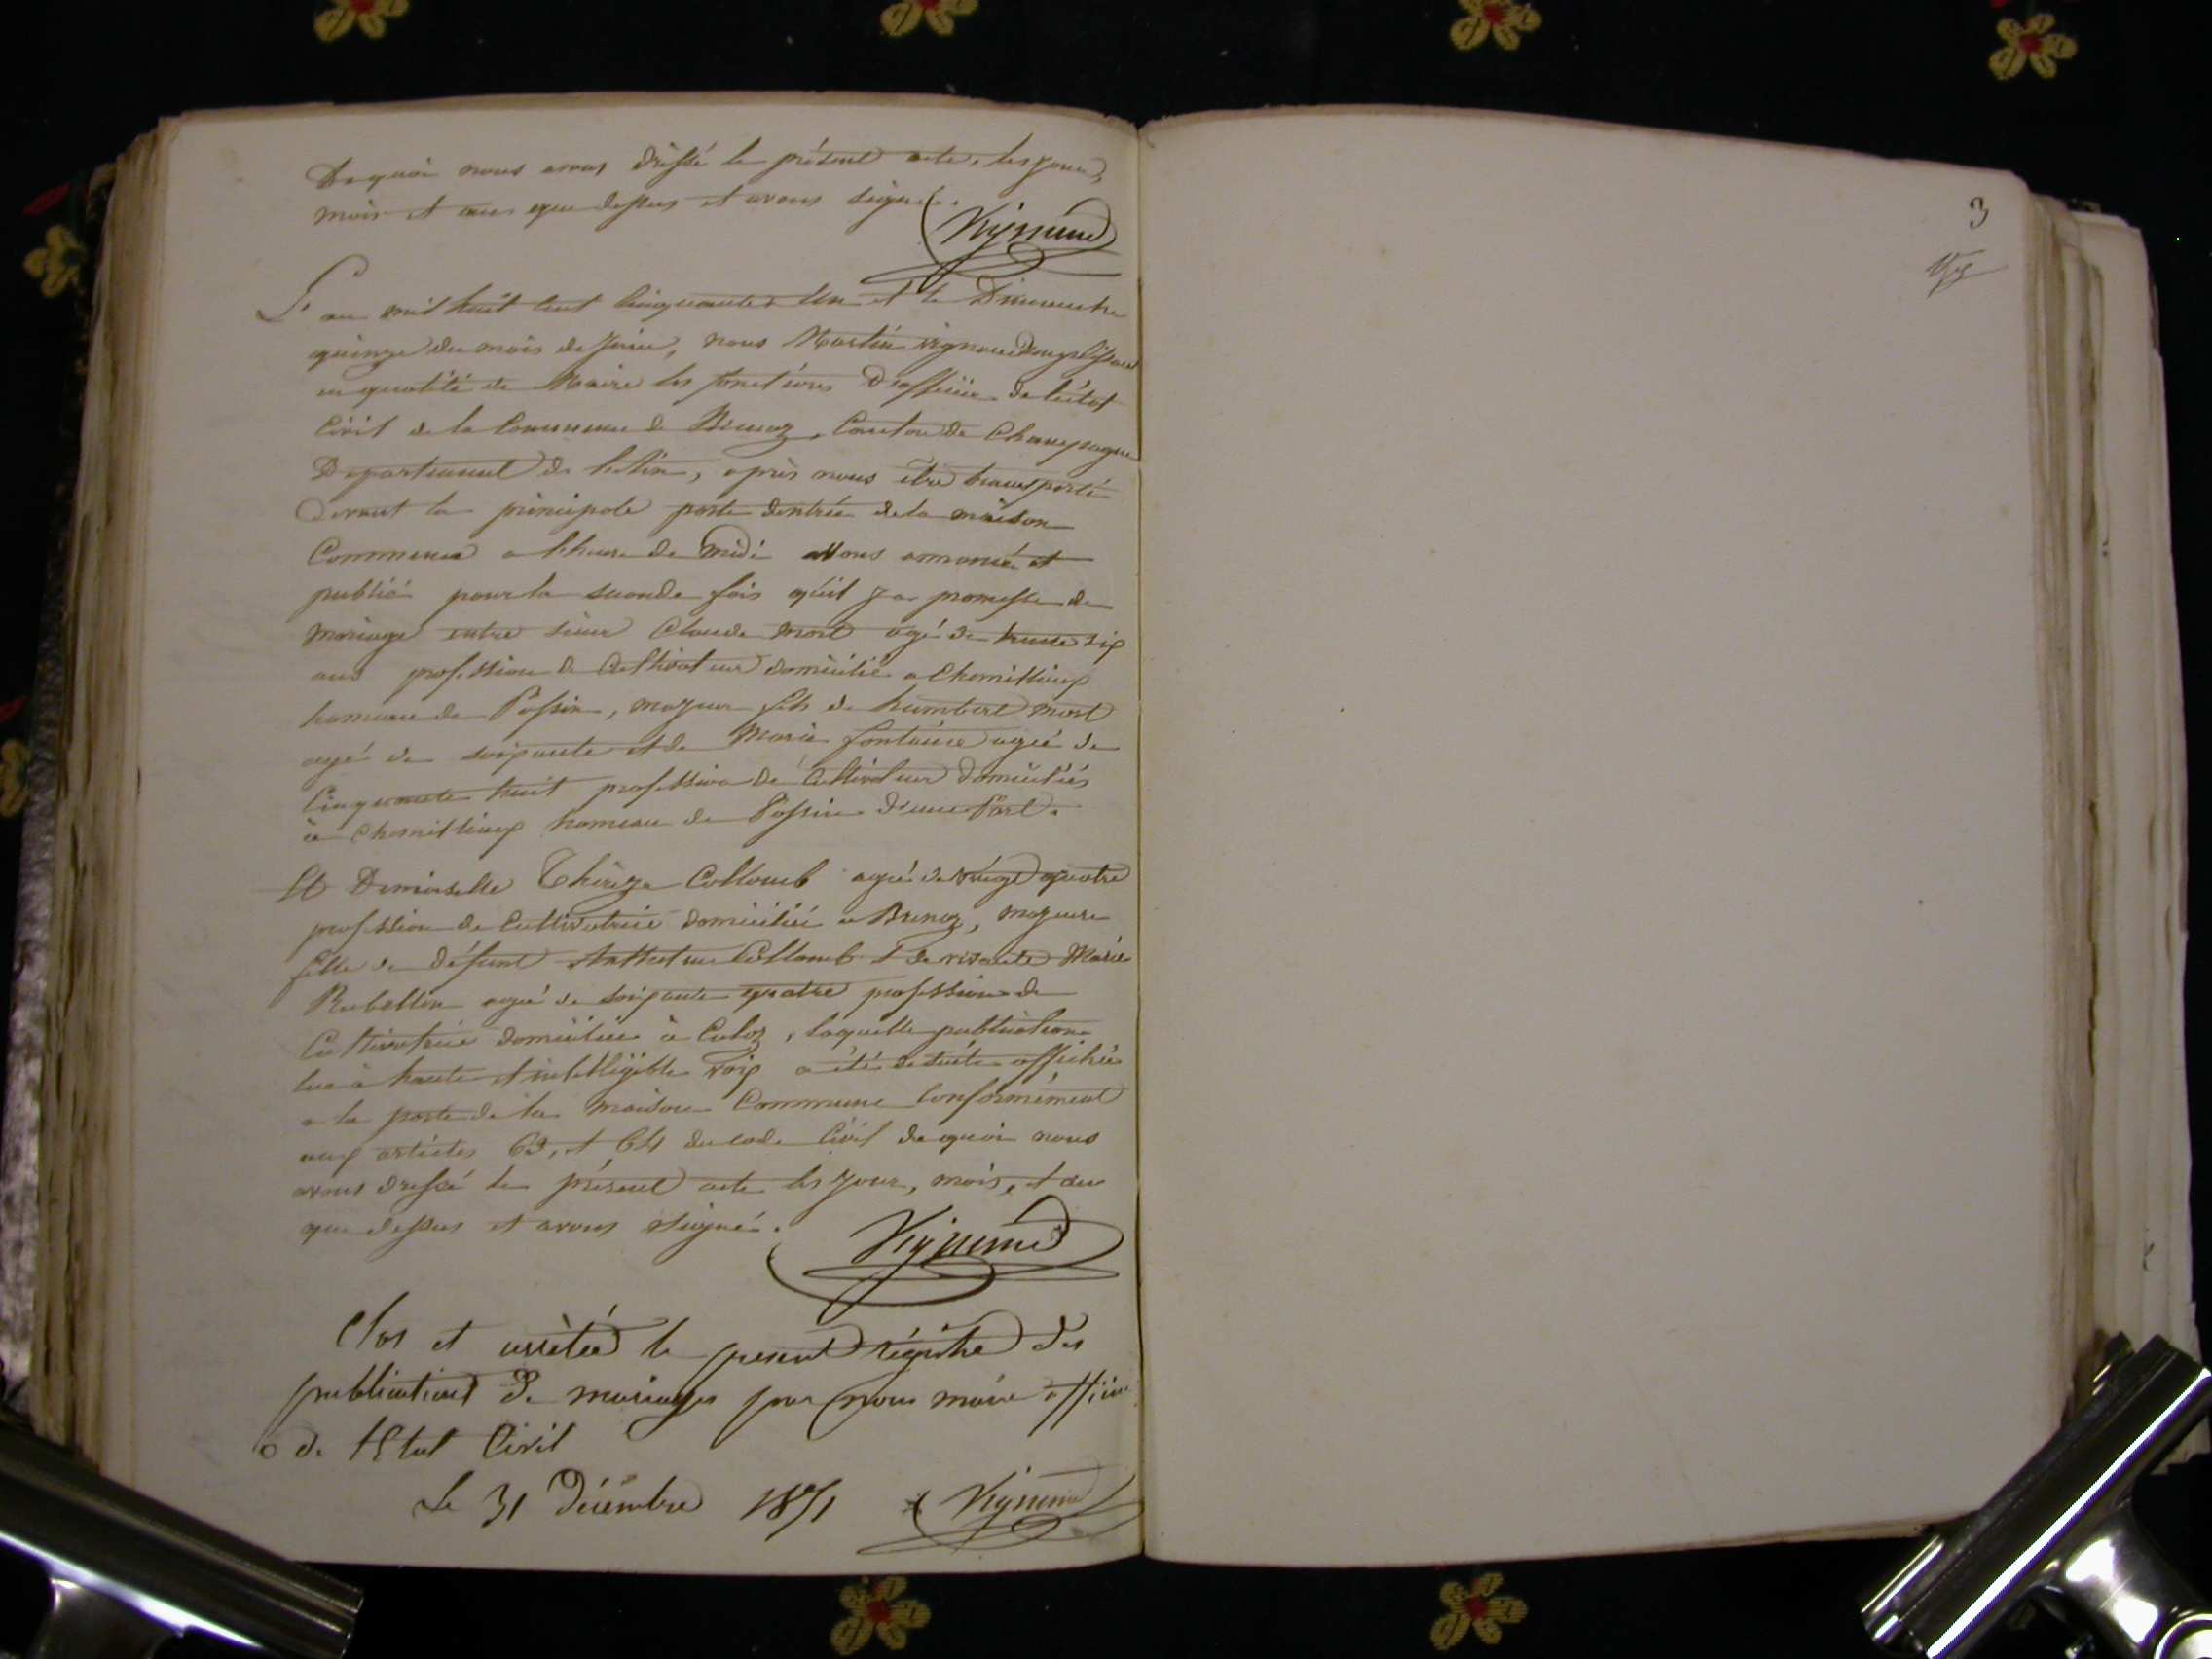 De quoi nous avons dressé le présent acte, les jour,
mois et an que dessus et avons signé.
Vignoud
L'an mil huit cent cinquante un et le Dimanche
quinze du mois de juin, nous Martin vignoud remplissant
en qualité de Maire les fonctions d'officier de l'état
Civil de la Commune de Brenaz, Canton de Champagne
Departement de l'ain, après nous être transporté
devant la principale porte dentrée de la maison
Commune a l'heure de midi avons annoncé et
publié pour la seconde fois qu'il y a promesse de
mariage entre sieur Claude mort agé de trente six
ans profession de Cultivateur domicilié a Chemillieux
hameau de Passin, majeur fils de humbert mort
agé de soixante et de Marie fontaine agée de
Cinquante huit profession de Cultivateur domiciliés
à Chemillieux hameau de Passin d'une Part.
Et Demoiselle Thérèze Collomb agée de vingt quatre
profession de Cultivatrice domiciliée a Brenaz, majeure
fille de défunt Anthelme Collomb et de vivante Marie
Rubellin agée de soixante quatre profession de
Cultivatrice domiciliée à Culoz, laquelle publication
lue à haute et intelligible voix a été de suite affichée
a la porte de la maison Commune Conformément
aux articles 63, et 64 du code Civil de quoi nous
avons dressé le présent acte les jour, mois, et an
que dessus et avons signé.
Vignoud
Clos et arrêté le present régistre des
publications de mariages par nous maire officier
de l'Etat Civil
Le 31 Décembre 1851 Vignoud
3